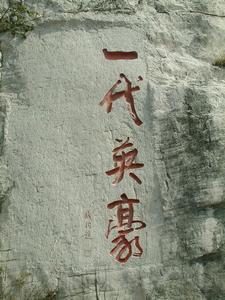 一代英豪